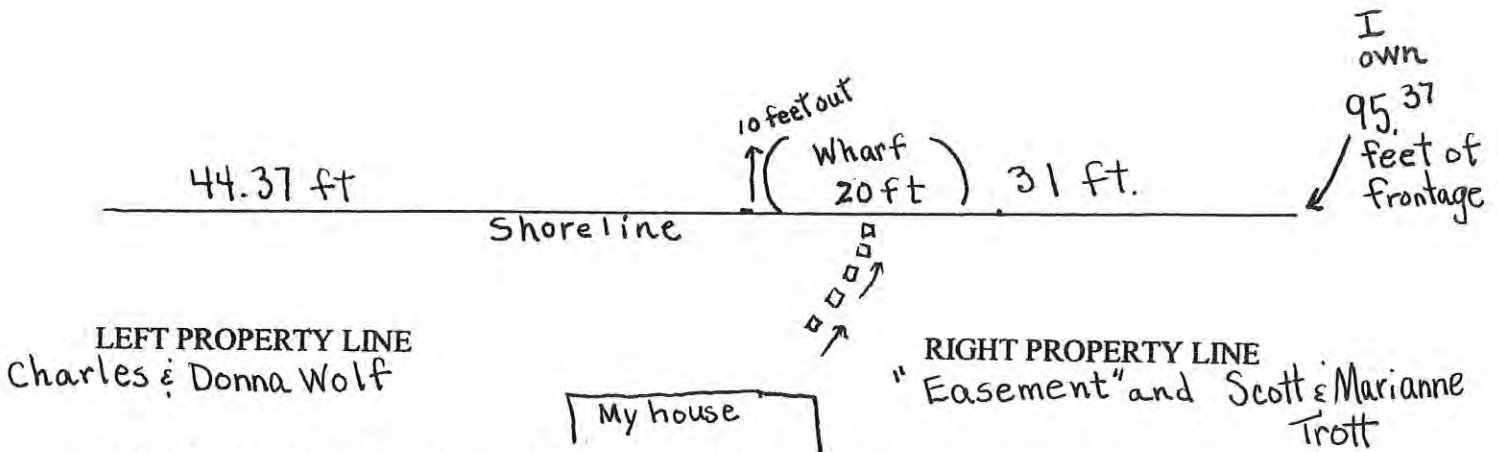 I
own
95.37
feet of
frontage
10 feet out
Wharf
20 ft
44.37 ft
31 ft.
Shoreline
LEFT PROPERTY LINE
Charles & Donna Wolf
RIGHT PROPERTY LINE
"Easement" and Scott & Marianne
Trott
My house